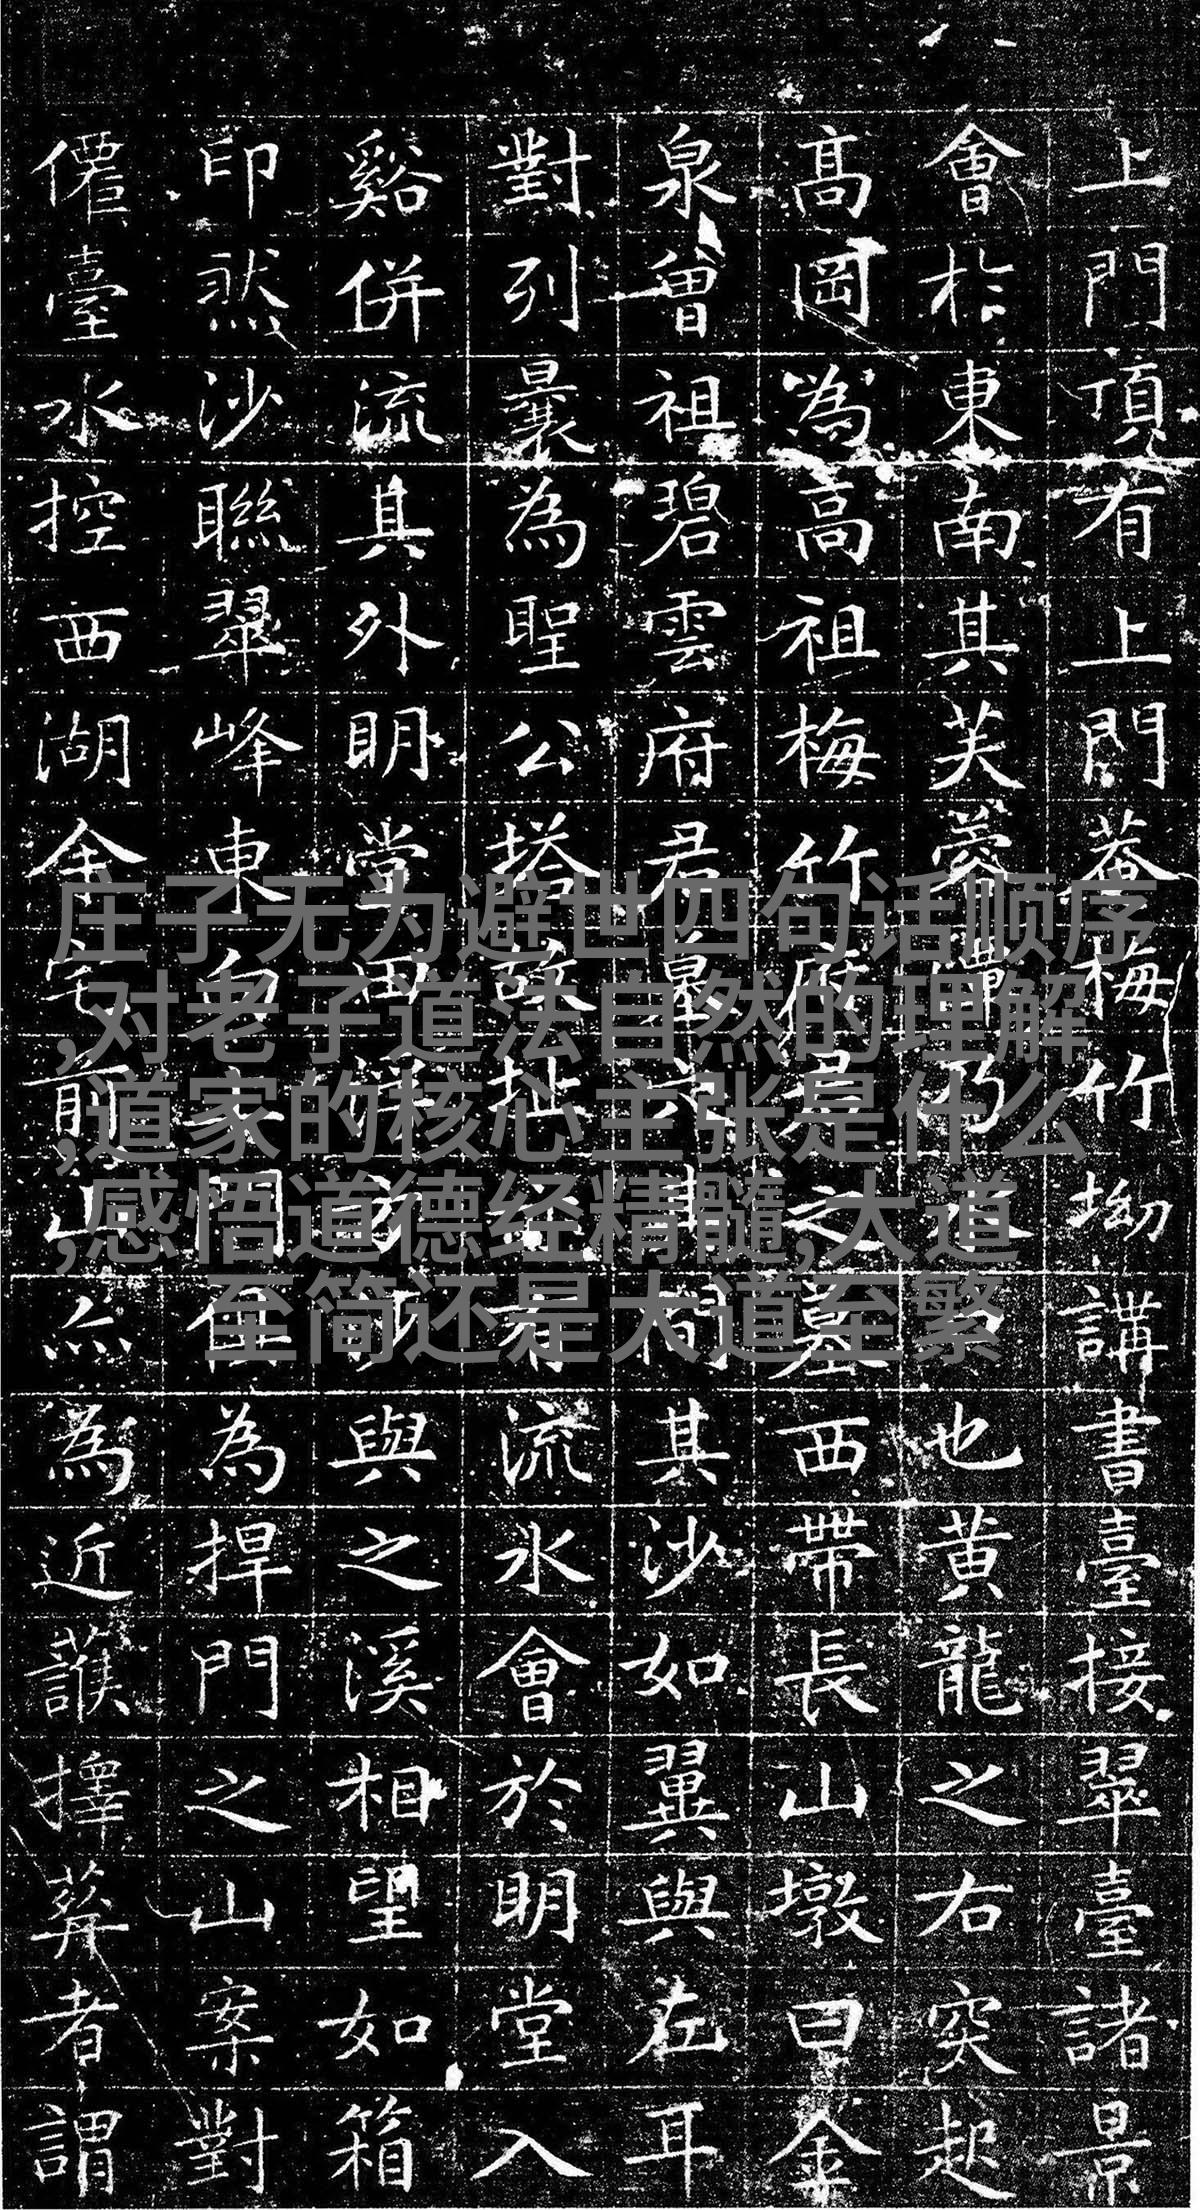 上門頂有上門菴梅竹坳講書臺接翠臺諸景
會扵東南其芙蓉乃也黃龍之右突起
高岡為高祖梅竹府君之墓西帶長山墩曰金
泉曾祖碧雲府君墓其沙如翼與左耳
對列曩為聖公塔故址流水會於明堂入
谿併流其外明堂田與之溪相望如箱
印然沙聯翠峰東為捍門之山案對
僊臺水控西湖余宅前山亦為近護擇葬者謂
庄子无为避世四句话顺序
,对老子道法自然的理解
,道家的核心主张是什么
,感悟道德经精髓,大道
至简还是大道至繁